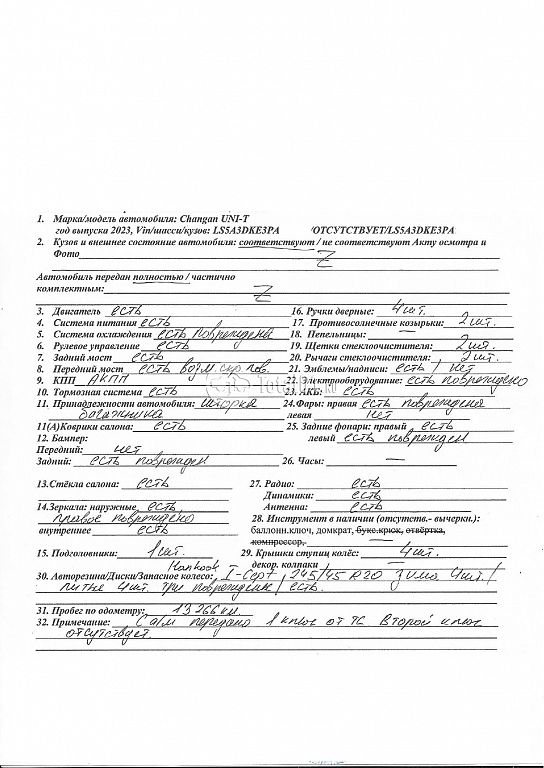 1. Марка/модель автомобиля: Changan UNI-T
год выпуска 2023, Vin/шасси/кузов: LS5A3DKE3PA /ОТСУТСТВУЕТ/LS5A3DKE3PA
2. Кузов и внешнее состояние автомобиля: соответствуют / не соответствуют Акту осмотра и
Фото Z
Автомобиль передан полностью / частично
комплектным: Z
3. Двигатель есть
4. Система питания есть
5. Система охлаждения есть повреждена
6. Рулевое управление есть
7. Задний мост есть
8. Передний мост есть возм. скр пов.
9. КПП АКПП
10. Тормозная система есть
11. Принадлежности автомобиля: шторка
багажника
11(А)Коврики салона: есть
12. Бампер:
Передний: нет
Задний: есть поврежден
13.Стёкла салона: есть
14.Зеркала: наружные есть
правое повреждено
внутреннее есть
15. Подголовники: 1 шт.
16. Ручки дверные: 4 шт.
17. Противосолнечные козырьки: 2 шт.
18. Пепельницы: —
19. Щетки стеклоочистителя: 2 шт.
20. Рычаги стеклоочистителя: 2 шт.
21. Эмблемы/надписи: есть / нет
22. Электрооборудование: есть повреждено
23. АКБ: есть
24.Фары: правая есть повреждена
левая нет
25. Задние фонари: правый есть
левый есть поврежден
26. Часы: —
27. Радио: есть
Динамики: есть
Антенна: есть
28. Инструмент в наличии (отсутств.- вычеркн.):
баллонн.ключ, домкрат, букс.крюк, отвёртка,
компрессор, —
29. Крышки ступиц колёс: 4 шт.
декор. колпаки —
Hankook
30. Авторезина/Диски/Запасное колесо: I-Cept, 245/45 R20 зима 4шт./
литые 4шт. три повреждение / есть.
31. Пробег по одометру: 13 266 км.
32. Примечание: С а/м передано 1 ключ от ТС Второй ключ
отсутствует.